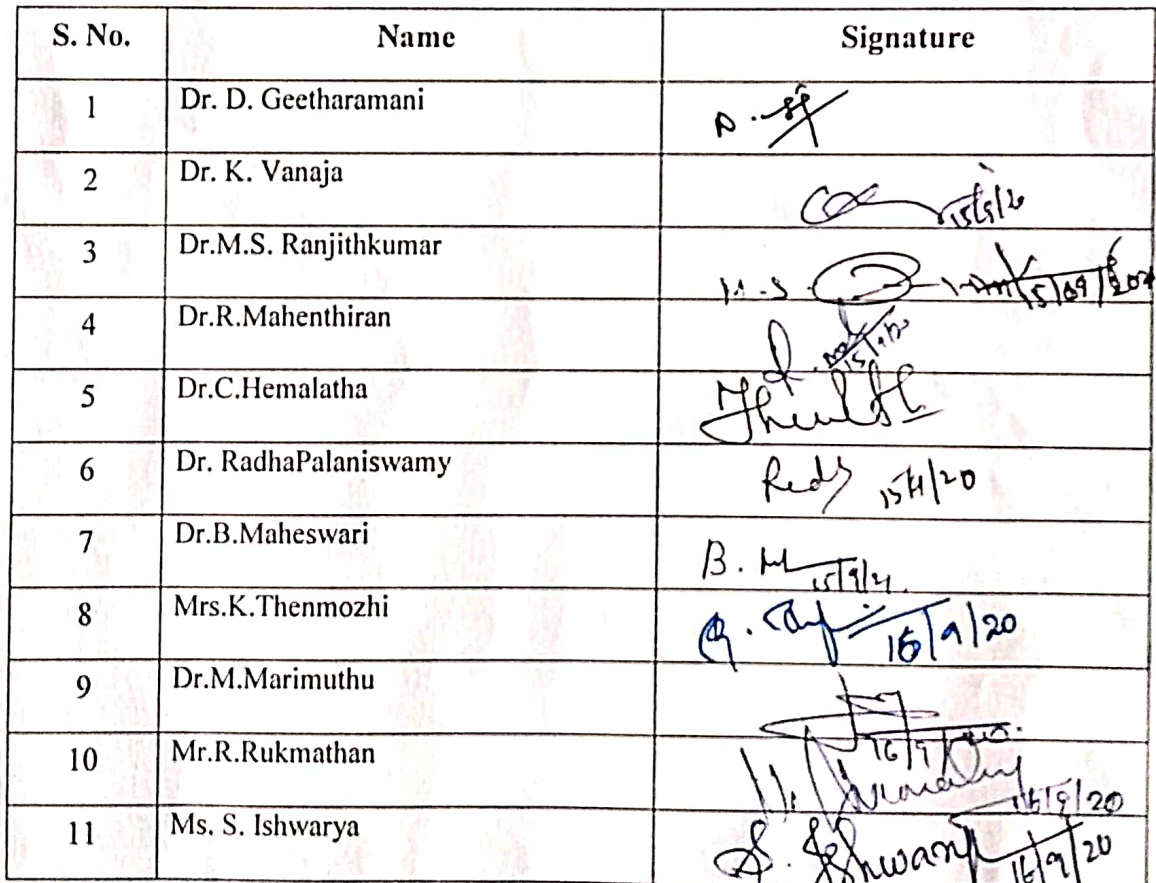 S. No. Name Signature
1 Dr. D. Geetharamani D.
2 Dr. K. Vanaja
3 Dr.M.S. Ranjithkumar M.S. 15/09/202
4 Dr.R.Mahenthiran R. 15/9/20
5 Dr.C.Hemalatha
6 Dr. RadhaPalaniswamy 15/9/20
7 Dr.B.Maheswari B. M
8 Mrs.K.Thenmozhi 15/9/20
9 Dr.M.Marimuthu
10 Mr.R.Rukmathan 15/9/20
11 Ms. S. Ishwarya S. Ishwarya 16/9/20